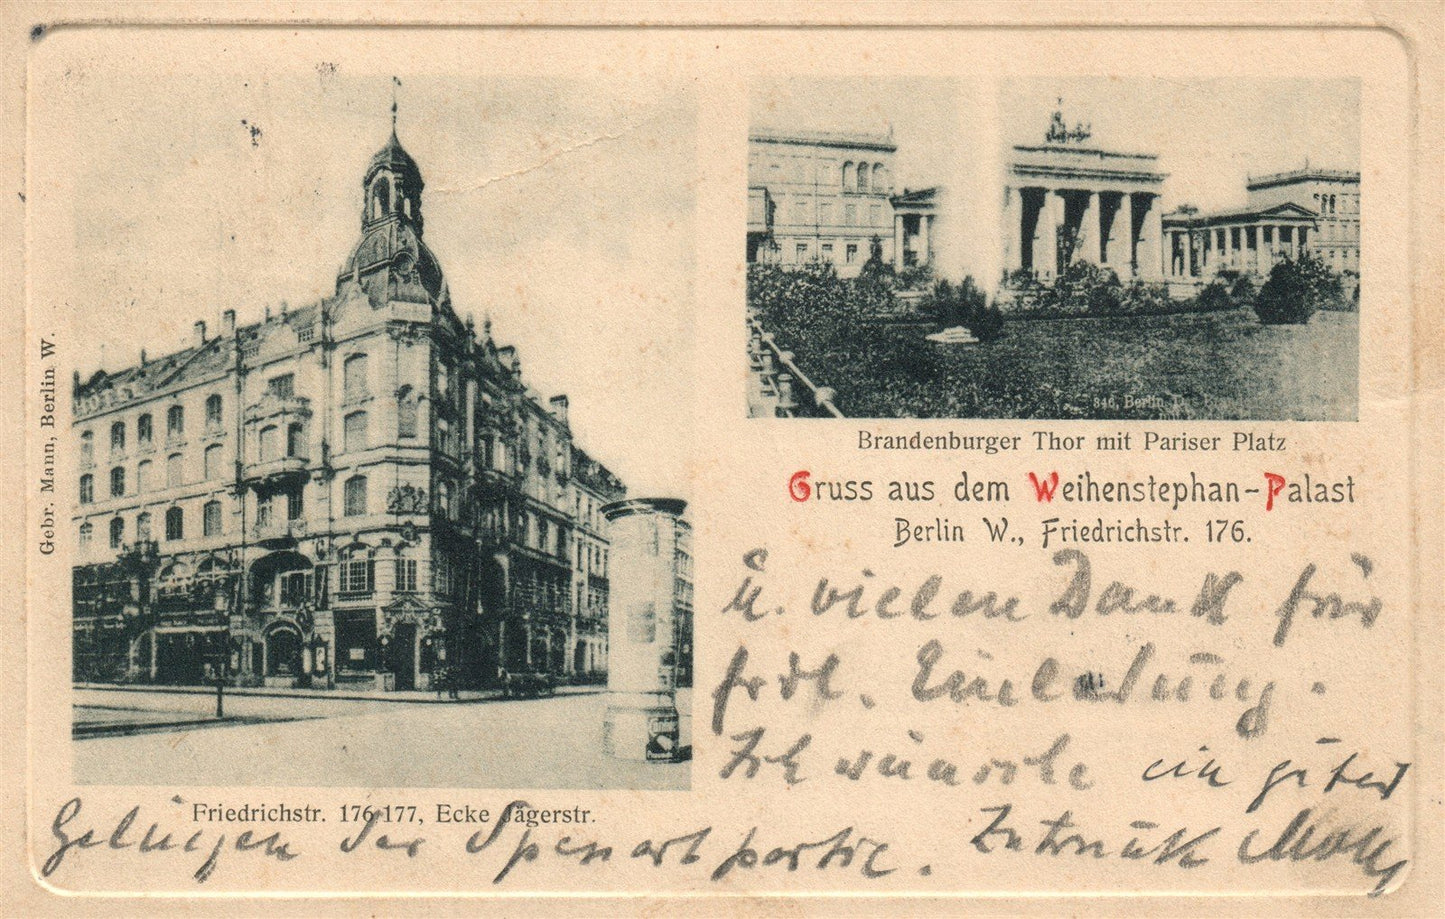 Gebr. Mann, Berlin W.
HOTEL
846, Berlin,
Brandenburger Thor mit Pariser Platz
Gruss aus dem Weihenstephan-Palast
Berlin W., Friedrichstr. 176.
Friedrichstr. 176/177, Ecke Jägerstr.
u. vielen Dank für
frdl. Einladung.
Ich wünsche ein guter
Gelingen der Spessartpartie.